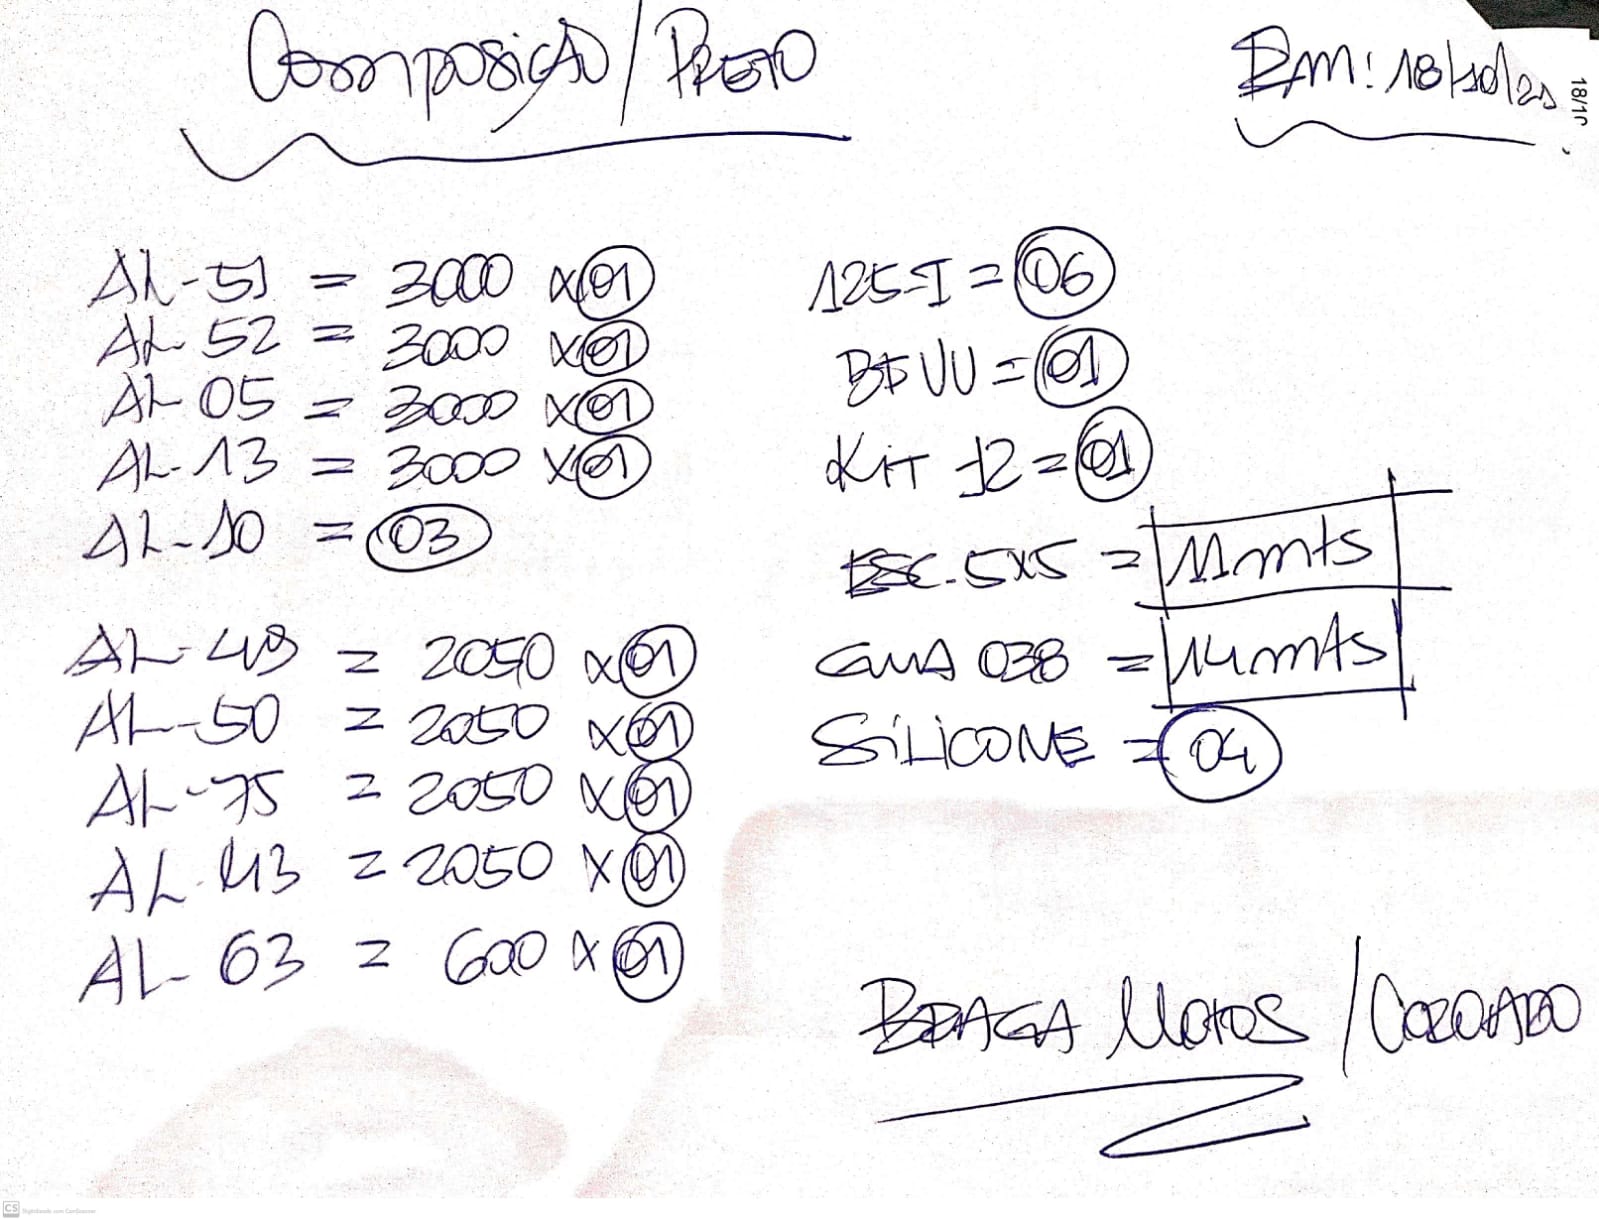 Composição/Preto
Em: 18/10/21
18/10
AL-51 = 3000 x 01
AL-52 = 3000 x 01
AL-05 = 3000 x 01
AL-13 = 3000 x 01
AL-10 = 03
AL-49 = 2050 x 01
AL-50 = 2050 x 01
AL-75 = 2050 x 01
AL-43 = 2050 x 01
AL-63 = 600 x 01
125-I = 06
= 01
KIT 12 = 01
ESC. 5x5 = 11 mts
GUA 038 = 14 mts
SILICONE = 04
BRAGA MOTOS / COROADO
CS